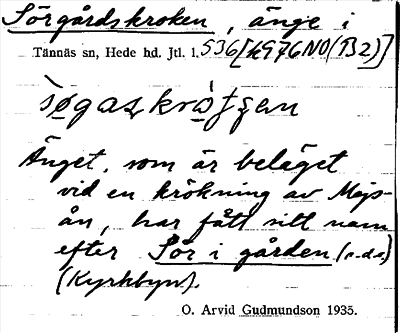 Sörgårdskroken, änge i
Tännäs sn, Hede hd. Jtl. l. 536[4976NO(B2)]
Änget, som är beläget
vid en krökning av Mejs-
ån, har fått sitt namn
efter Sör i gården (s.d.s.)
(Kyrkbyn).
O. Arvid Gudmundson 1935.